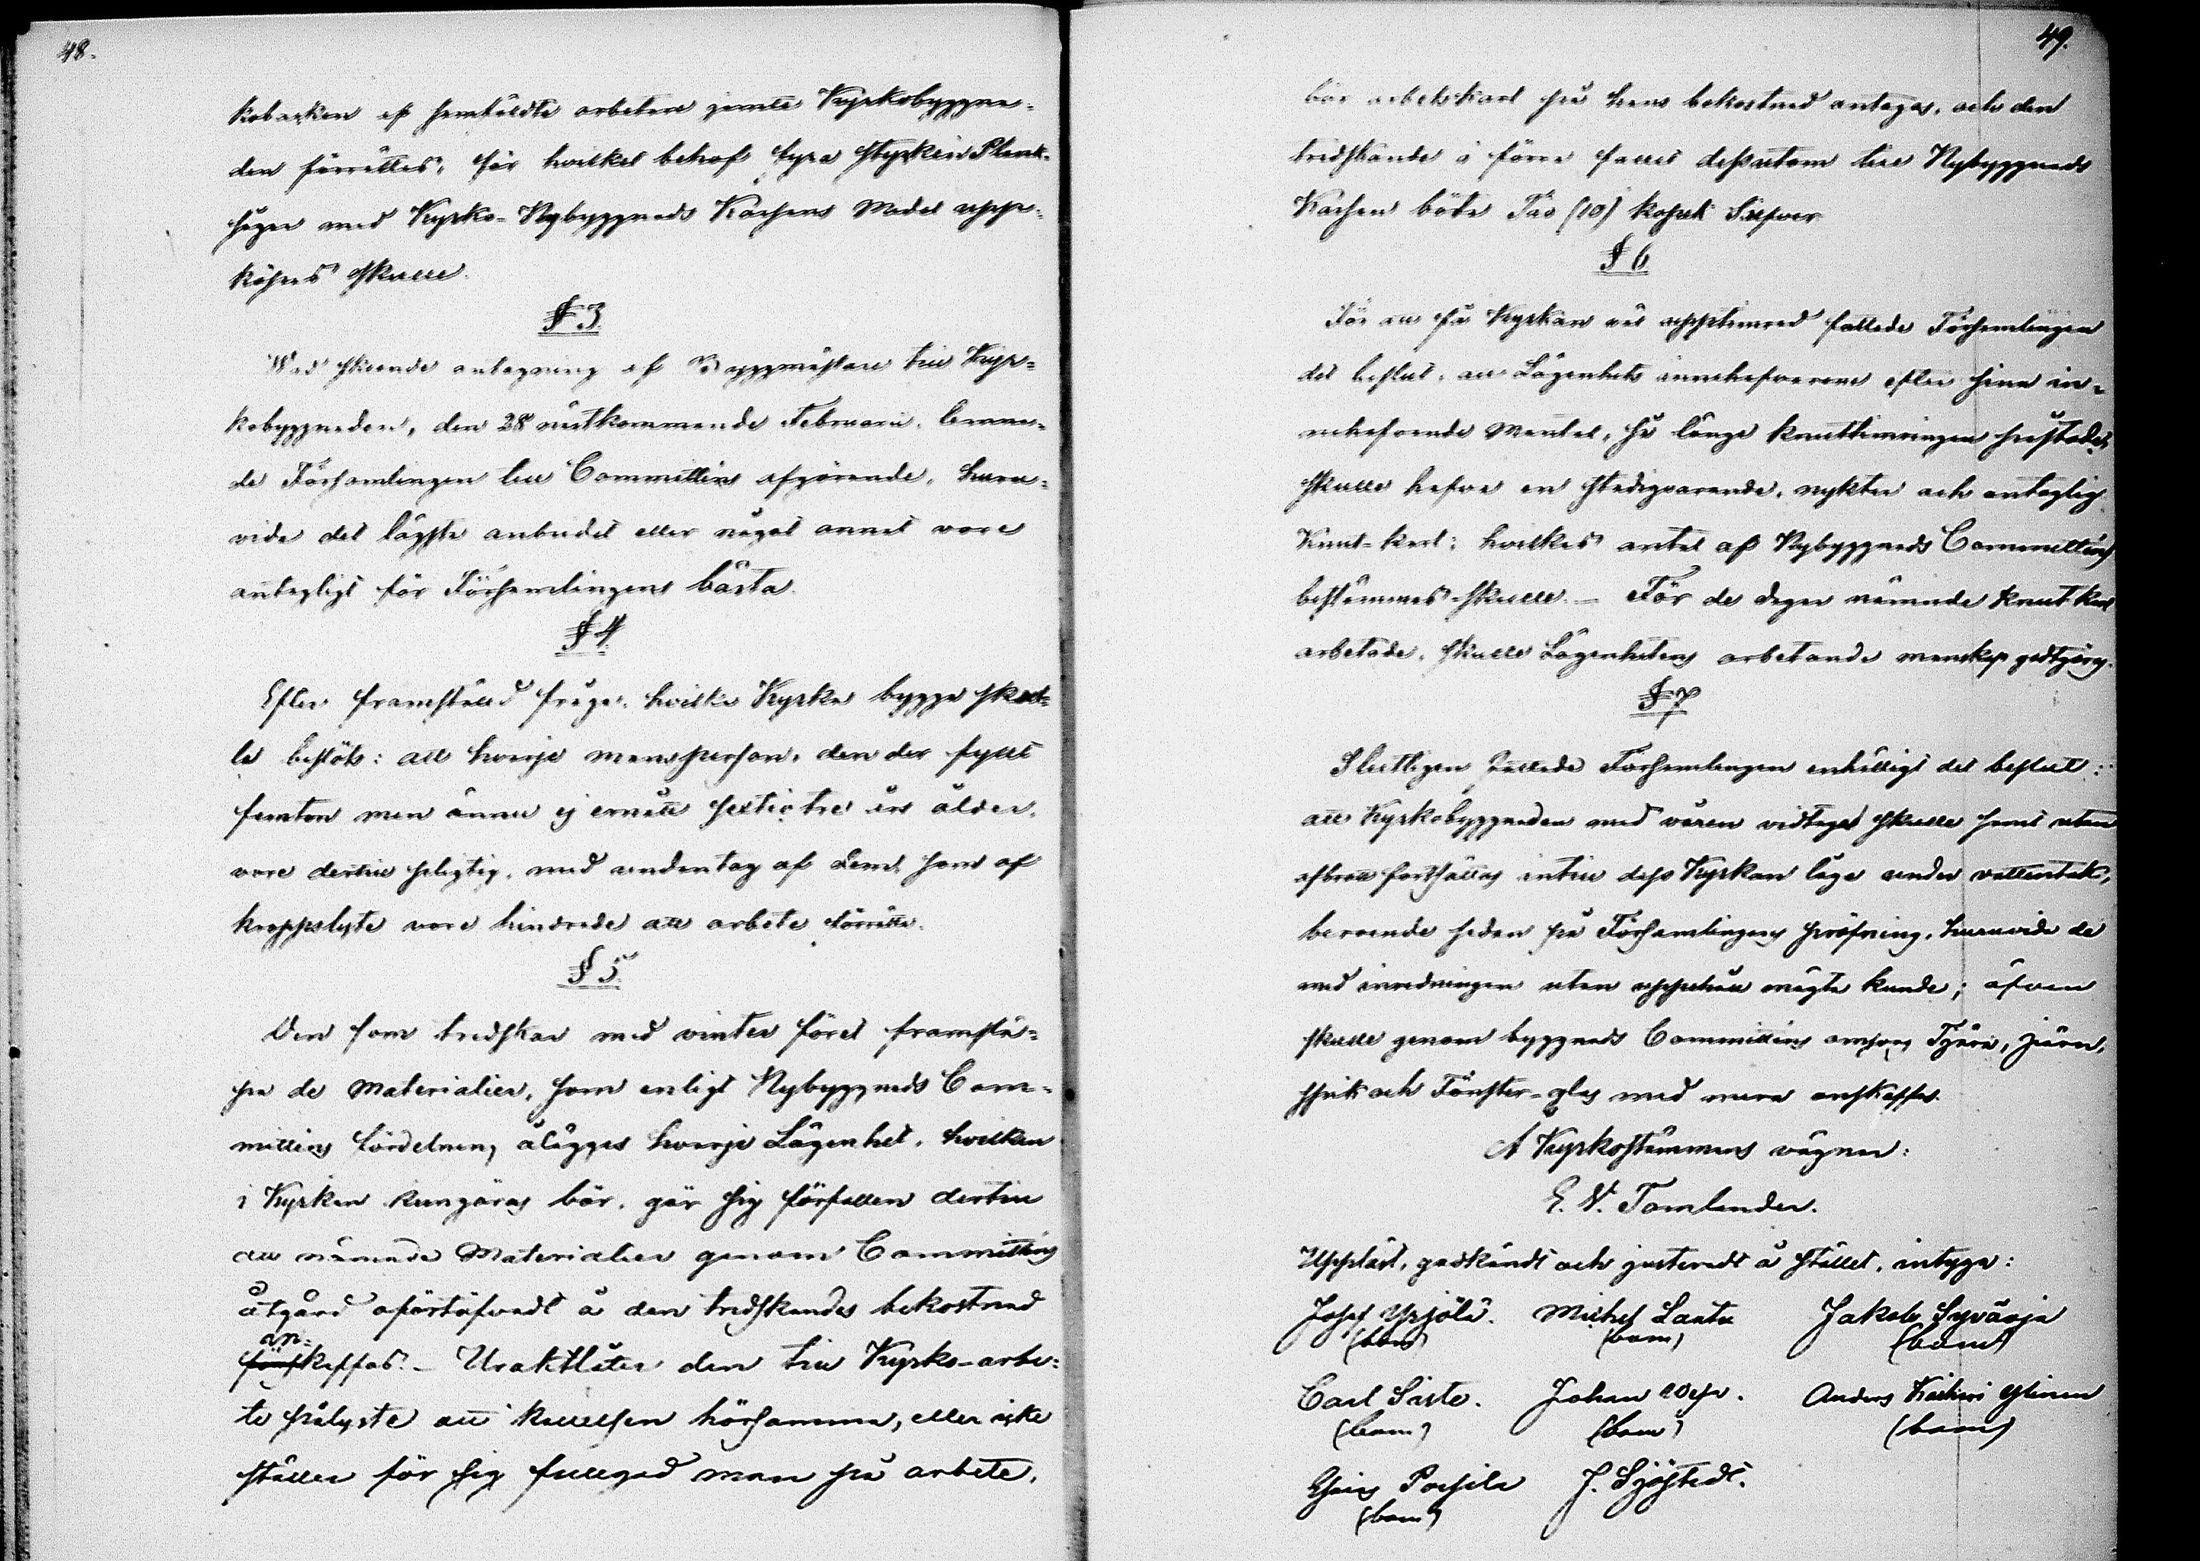 48.
kobacken af hemfäldta arbeten jemte Kyrkobyggna-
den förrättes, för hvilket behof fyra stycken Plank-
sågar med Kyrko-Nybyggnads Kassans Medel upp-
köpas skulle.
§ 3.
Wid skeende antagning af Byggmästare till Kyr-
kobyggnaden, den 28 nästkommande Februarii, lemna-
de Församlingen till Committéns afgörande, huru-
vida det lägsta anbudet eller något annat vore
antagligt för Församlingens bästa.
§ 4.
Efter framstäld fråga, hvilka Kyrka bygga skul-
le beslöts: att hvarje mansperson, den der fyllt
femton men ännu ej ernått sextiotre års ålder,
vore dertill pligtig, med undantag af dem, som af
kroppslyte vore hindrade att arbete förrätta.
§ 5.
Den som tredskar med vinter föret framska-
pa de Materialier, som enligt Nybyggnads Com-
mitténs fördelning åläggas hvarje Lägenhet, hvilken
i Kyrkan kungöras bör, gör sig förfallen dertill
att nämnde Materialier genom Committéns
åtgärd oförtöfvadt å den tredskandes bekostnad
an-
skaffas. Uraktlåter den till Kyrko-arbe-
te pålyste att kallelsen hörsamma, eller icke
ställer för sig fullgod man på arbete,
49.
bör arbetskarl på hans bekostnad antagas, och den
tredskande i förra fallet dessutom till Nybyggnads
Kassan böta Tio (10) kopek Silfver.
§ 6.
För att få Kyrkan väl upptimrad fattade Församlingen
det beslut, att Lägenhets innehafvarene efter sina in-
nehafvande Mantal, så länge knuttimringen påstode,
skulle hafva en stadigvarande, nykter och antaglig
Knut-karl; hvilkas antal af Nybyggnads Committén
bestämmas skulle. – För de dagar nämnde knutkarl
arbetade, skulle Lägenhetens arbetande manskap godtgöras.
§ 7
Slutligen fattade Församlingen enhälligt det beslut:
att Kyrkobyggnaden med våren vidtagas skulle samt utan
afbrott fortsättas intill dess Kyrkan låge under vattentak,
beroende sedan på Församlingens pröfning, huruvida de
med inredningen utan uppehåll mägta kunde; äfven
skulle genom byggnads Committéns omsorg Tjära, järn,
spik och Fönster-glas med mera anskaffas.
Å Kyrkostämmans vägnar:
E. W. Tamlander.
Uppläst, godkändt och justeradt å stället, intyga:
Josef Yrjölä. Michel Lantu Jakob Syväoja
(bom) (bom) (bom)
Carl Siste. Johan Johan
(bom) (bom) (bom)
J. Sjöstedt.
(bom)